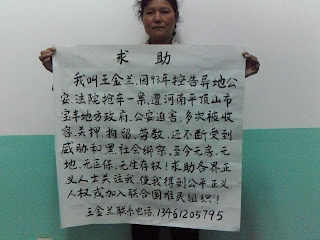 求助
我叫王金兰,因93年控告异地公
安、法院抢车一案,遭河南平顶山市
宝丰地方政府、公安迫害,多次被收
容、关押、拘留、劳教,还不断受到
威胁和黑社会绑架,至今无房,无
地,无医保,无生存权!求助各界正
义人士关注我,使我得到公平,正义
人权或加入联合国难民组织!
王金兰联系电话,13461205795